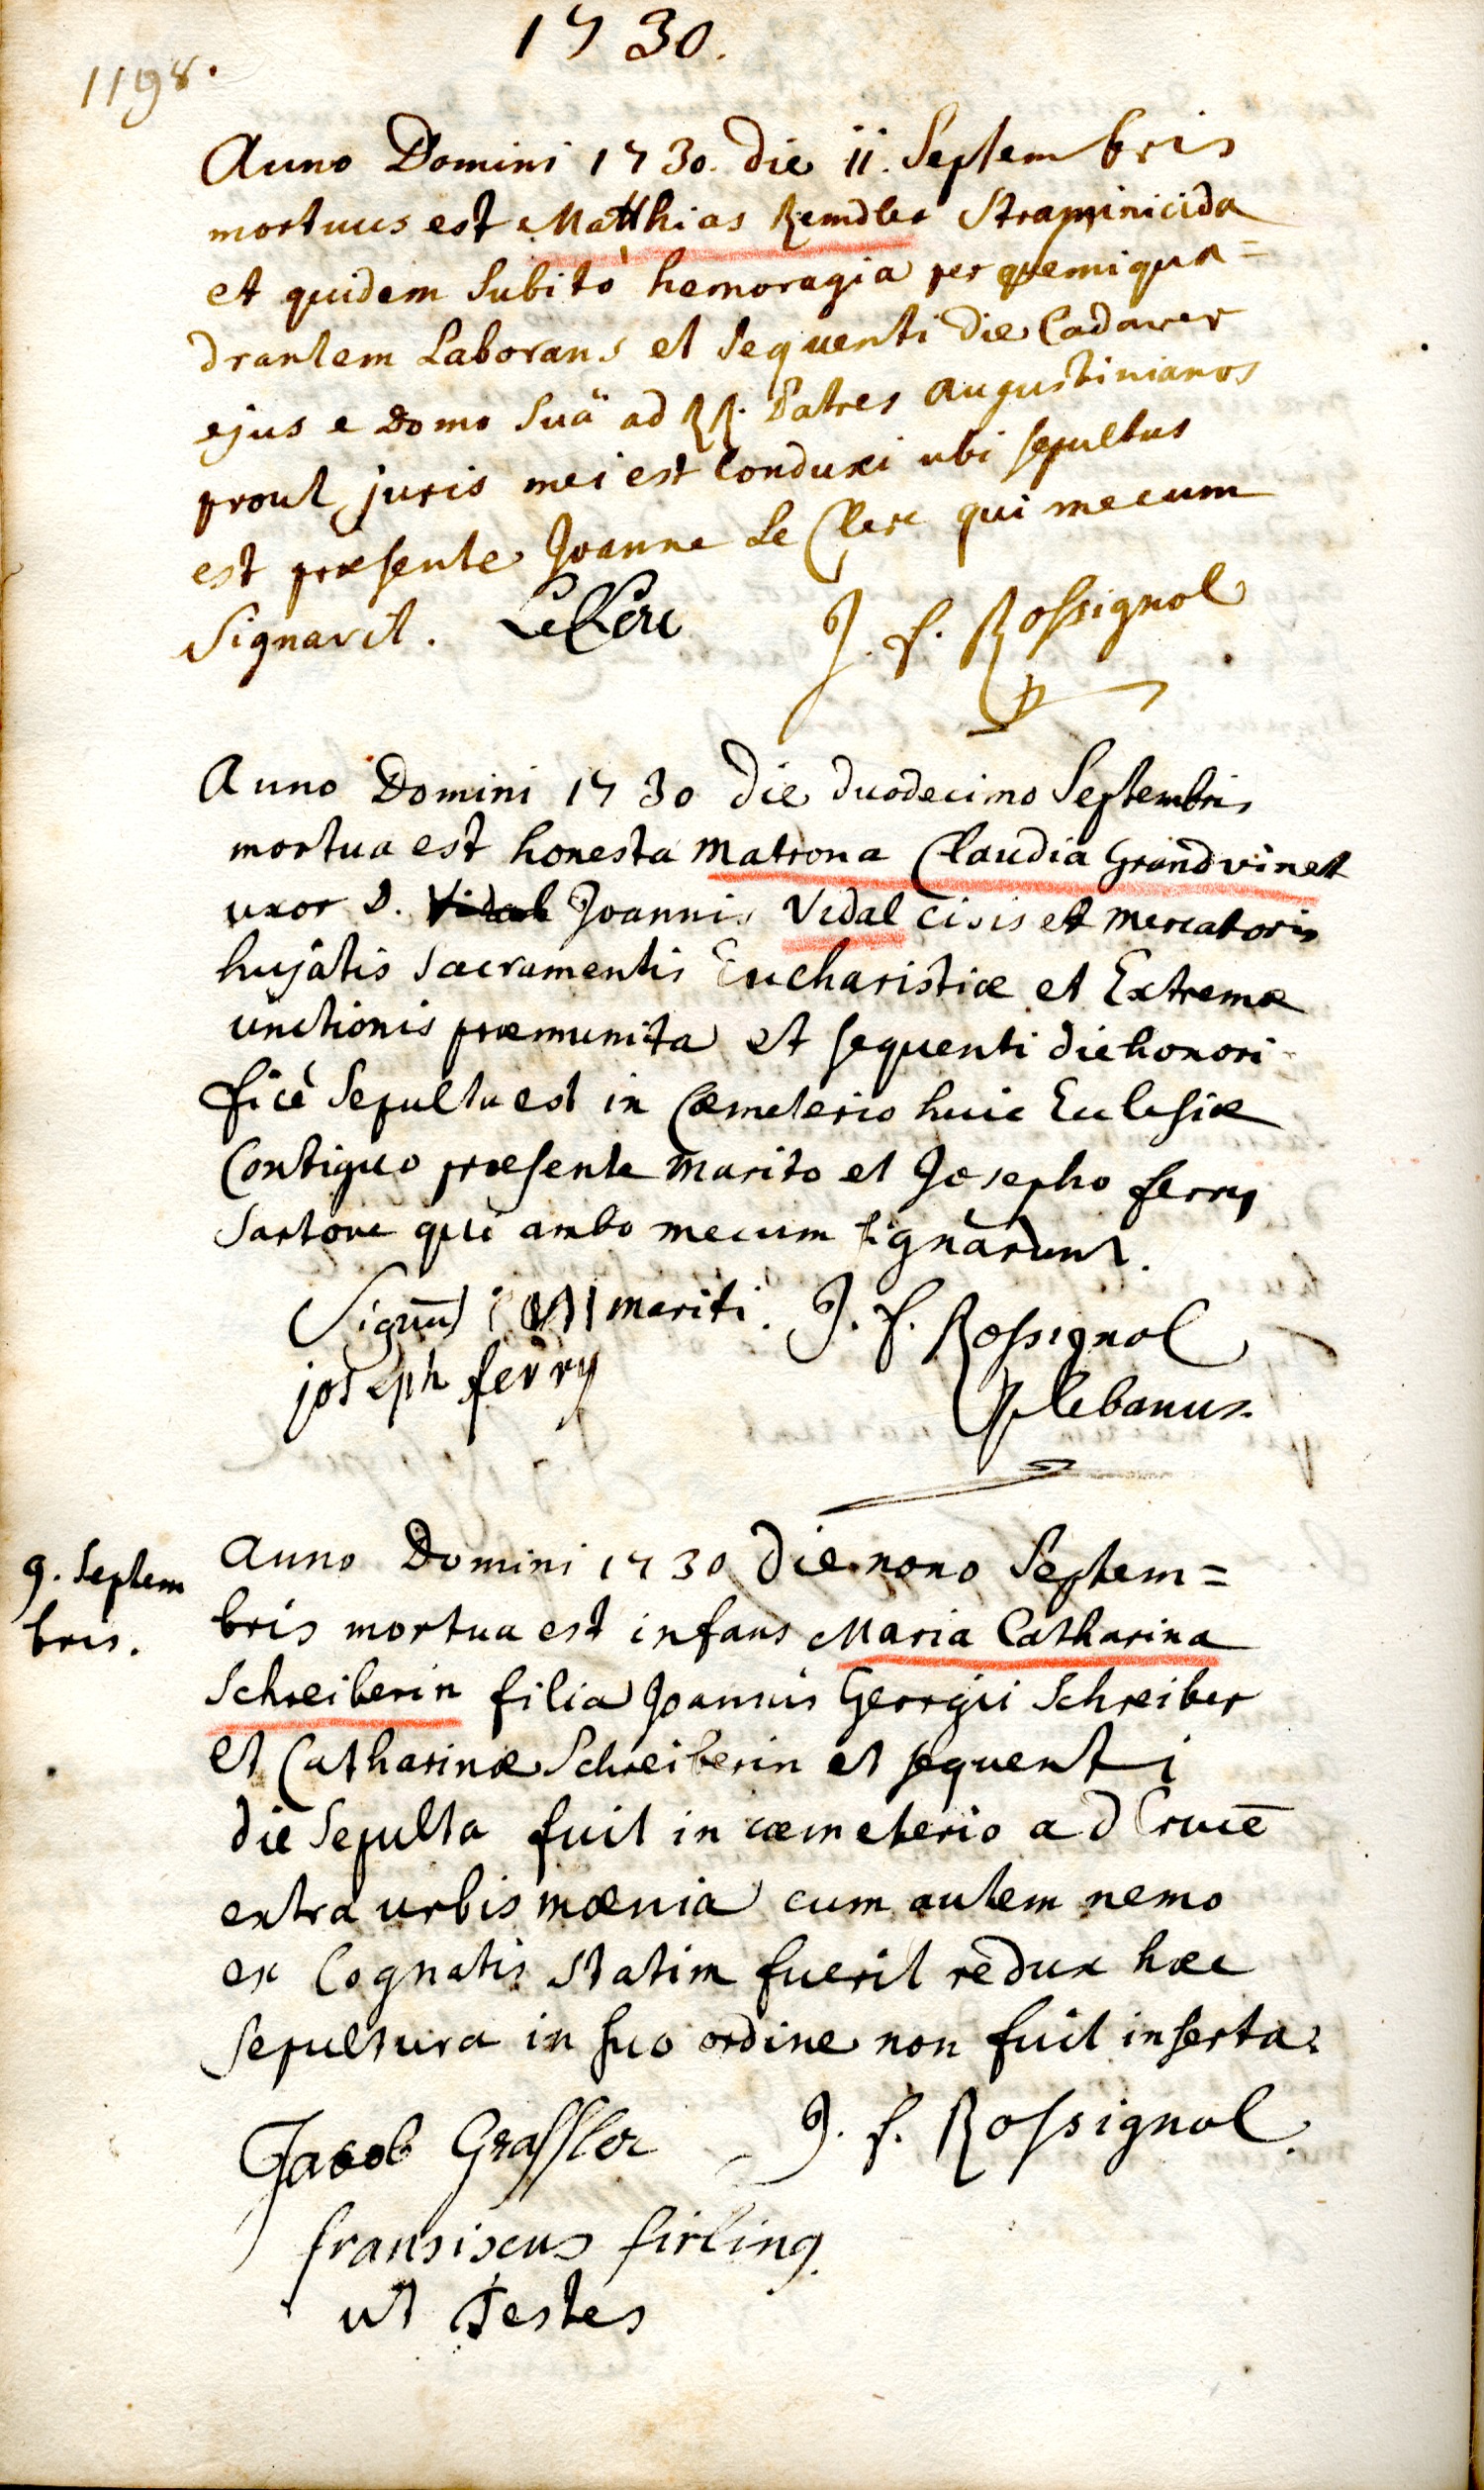 1730.
1198.
Anno Domini 1730. die ii. Septembris
mortuus est Matthias Remdler Straminicida
et quidem Subitò hemoragia per qua=
drantem Laborans et Sequenti die Cadaver
ejus e Domo Suâ ad RR. Patres Augustinianos
prout juris mei est Conduxi ubi sepultus
est præsente Joanne Le Clerc qui mecum
Signavit. LeClerc J. f. Rossignol
Anno Domini 1730 die duodecimo Septembris
mortua est honesta Matrona Claudia Grandvinet
uxor D. Vidal Joannis Vidal civis et Mercatoris
hujatis Sacramentis Eucharistiæ et Extremæ
unctionis præmunita et sequenti die honori-
ficè Sepulta est in Cæmeterio huic Ecclesiæ
Contiguo præsente Marito et Josepho ferry
Sartore qui ambo mecum signârunt.
Signū mariti. J. f. Rossignol
joseph ferry Plebanus.
9. Septem
bris.
Anno Domini 1730 die nono Septem=
bris mortua est infans Maria Catharina
Schreiberin filia Joannis Georgii Schreiber
et Catharinæ Schreiberin et sequenti
die Sepulta fuit in cæmeterio ad Crucē
extra urbis mænia cum autem nemo
ex Cognatis statim fuerit redux hæc
Sepultura in suo ordine non fuit inserta.
Jacob Grassler J. f. Rossignol.
fransiscus firling.
ut Testes